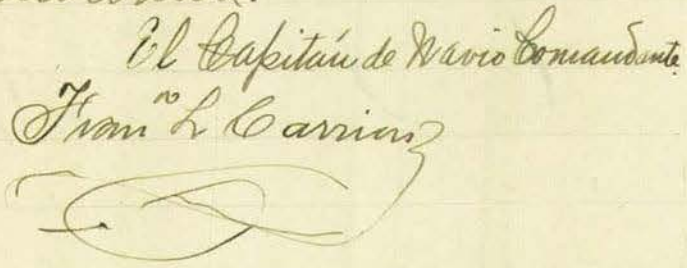 El Capitán de Navio Comandante.
Fran.ᶜᵒ L Carrion